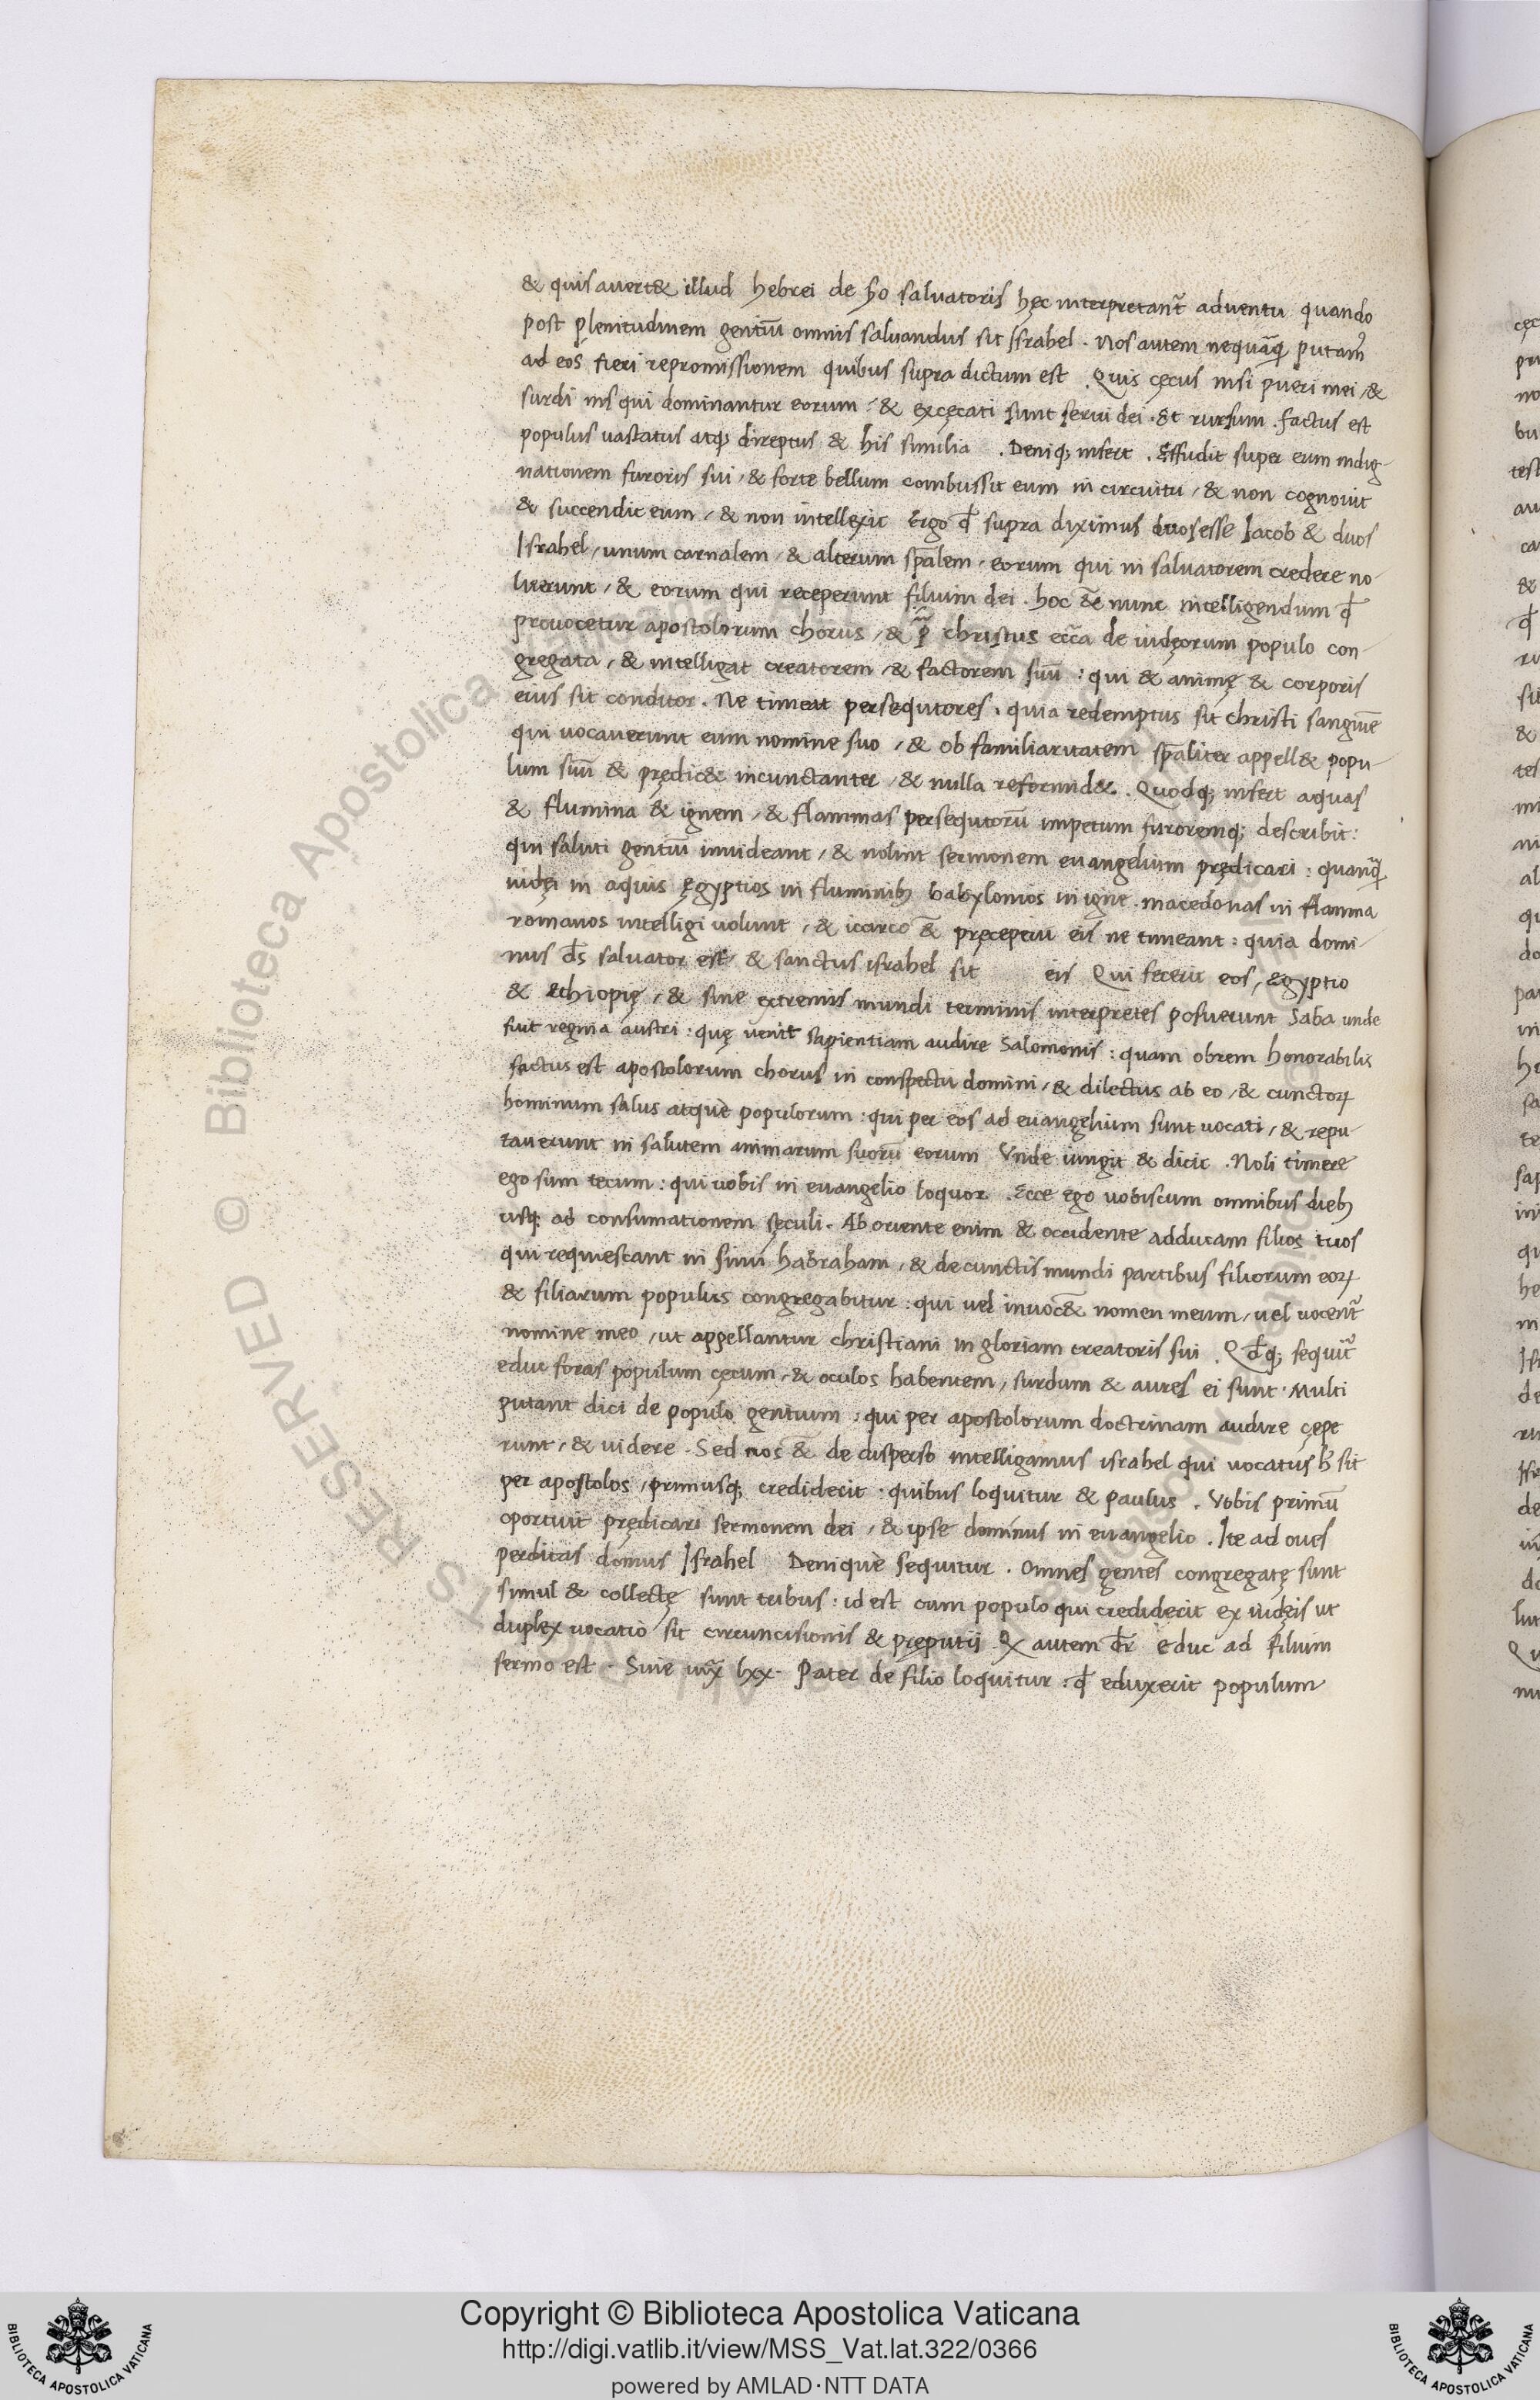 & quis avert& illud hebrei de s̄o saluatoris hęc interpretant᷑ aduentu quando
post plenitudinem gentiū omnis saluandus sit Israhel . Nos autem nequāq̨ putam᷒
ad eos fieri repromissionem quibus supra dictum est . Quis cęcus nisi pueri mei / &
surdi nisi qui dominantur eorum / & excęcati sunt serui dei . Et rursum . factus est
populus uastatus atq; direptus & his similia . Deniq; infert . Effudit super eum indig-
nationem furoris sui / & forte bellum combussit eum in circuitu / & non cognouit
& succendit eum / & non intellexit Ergo qđ supra diximus duos esse Iacob & duos
Israhel / unum carnalem / & alterum sp̄alem / eorum qui in saluatorem credere no-
luerunt / & eorum qui receperunt filium dei . hoc &̄ nunc intelligendum qđ
prouocetur apostolorum chorus / & p̄ christus ecc̄a de iudęorum populo con-
gregata / & intelligat creatorem / & factorem suū : qui & animę & corporis
eius sit conditor . Ne timeat persequtores . quia redemptus sit christi sanguīe
qui uocauerunt eum nomine suo / & ob familiaritatem sp̄aliter appell& popu-
lum suū & prędic& incunctanter / & nulla reformid& . Quodq; infert aquas
& flumina & ignem / & flammas persequtorū impetum furoremq; describit :
qui saluti gentiū inuideant / & nolint sermonem euangelium prędicari : quanq̄
iudęi in aquis ęgyptios in fluminib; babylonios in igne . macedonas in flamma
romanos intelligi uolunt / & &̄ pręceptū eis ne timeant : quia domi-
nus d̄s saluator est / & sanctus israhel sit eis Qui fecerit eos / Egyptio
& ethiopię / & sine extremis mundi terminis interpretes posuerunt Saba unde
fuit regina austri : quę uenit sapientiam audire Salomonis : quam obrem honorabilis
factus est apostolorum chorus in conspectu domini / & dilectus ab eo / & cunctoꝝ
hominum salus atquè populorum : qui per eos ad euangelium sunt uocati / & repu-
tauerunt in salutem animarum suorū eorum Vnde iungit & dicit . Noli timere
ego sum tecum : qui uobis in euangelio loquor . Ecce ego uobiscum omnibus dieb;
usq; ad consumationem sęculi . Ab oriente enim & occidente adducam filios tuos
qui requiescant in sinu habraham / & de cunctis mundi partibus filiorum eoꝝ
& filiarum populus congregabitur : qui uel inuoc& nomen meum / uel uocent᷑
nomine meo / ut appellantur christiani in gloriam creatoris sui . Qđq; sequit᷑
educ foras populum cęcum / & oculos habentem / surdum & aures ei sunt . Multi
putant dici de populo gentium : qui per apostolorum doctrinam audire cępe
runt / & uidere . Sed nos &̄ de disperso intelligamus israhel qui uocatus sit
per apostolos / primusq; crediderit . quibus loquitur & paulus . Vobis primū
oportuit prędicari sermonem dei / & ipse dominus in euangelio . Ite ad oues
perditas domus Israhel Deniquè sequitur . Omnes gentes congregatę sunt
simul & collectę sunt tribus : id est cum populo qui crediderit ex iudęis ut
duplex uocatio sit circuncisionis & pręputii . Qđ autem dr̄ educ ad filium
sermo est . Siue iux̄ lxx . Pater de filio loquitur : qđ eduxerit populum
Copyright © Biblioteca Apostolica Vaticana
http://digi.vatlib.it/view/MSS_Vat.lat.322/0366
powered by AMLAD·NTT DATA
BIBLIOTECA APOSTOLICA VATICANA
BIBLIOTECA APOSTOLICA VATICANA